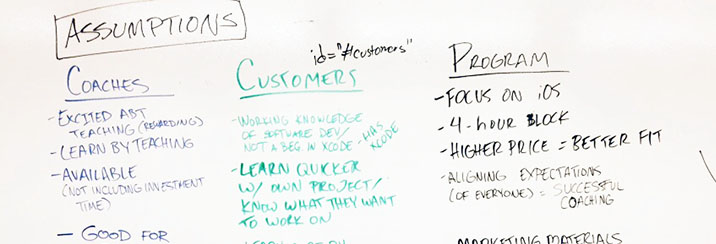 ASSUMPTIONS
id="#customers"
COACHES
- EXCITED ABT
TEACHING (REWARDING)
- LEARN BY TEACHING
- AVAILABLE
(NOT INCLUDING INVESTMENT
TIME)
- GOOD FOR
CUSTOMERS
- WORKING KNOWLEDGE
OF SOFTWARE DEV/
NOT A BEG IN XCODE - HAS
XCODE
- LEARN QUICKER
W/ OWN PROJECT/
KNOW WHAT THEY WANT
TO WORK ON
PROGRAM
- FOCUS ON iOS
- 4-HOUR BLOCK
- HIGHER PRICE = BETTER FIT
- ALIGNING EXPECTATIONS
(OF EVERYONE) = SUCCESSFUL
COACHING
MARKETING MATERIALS